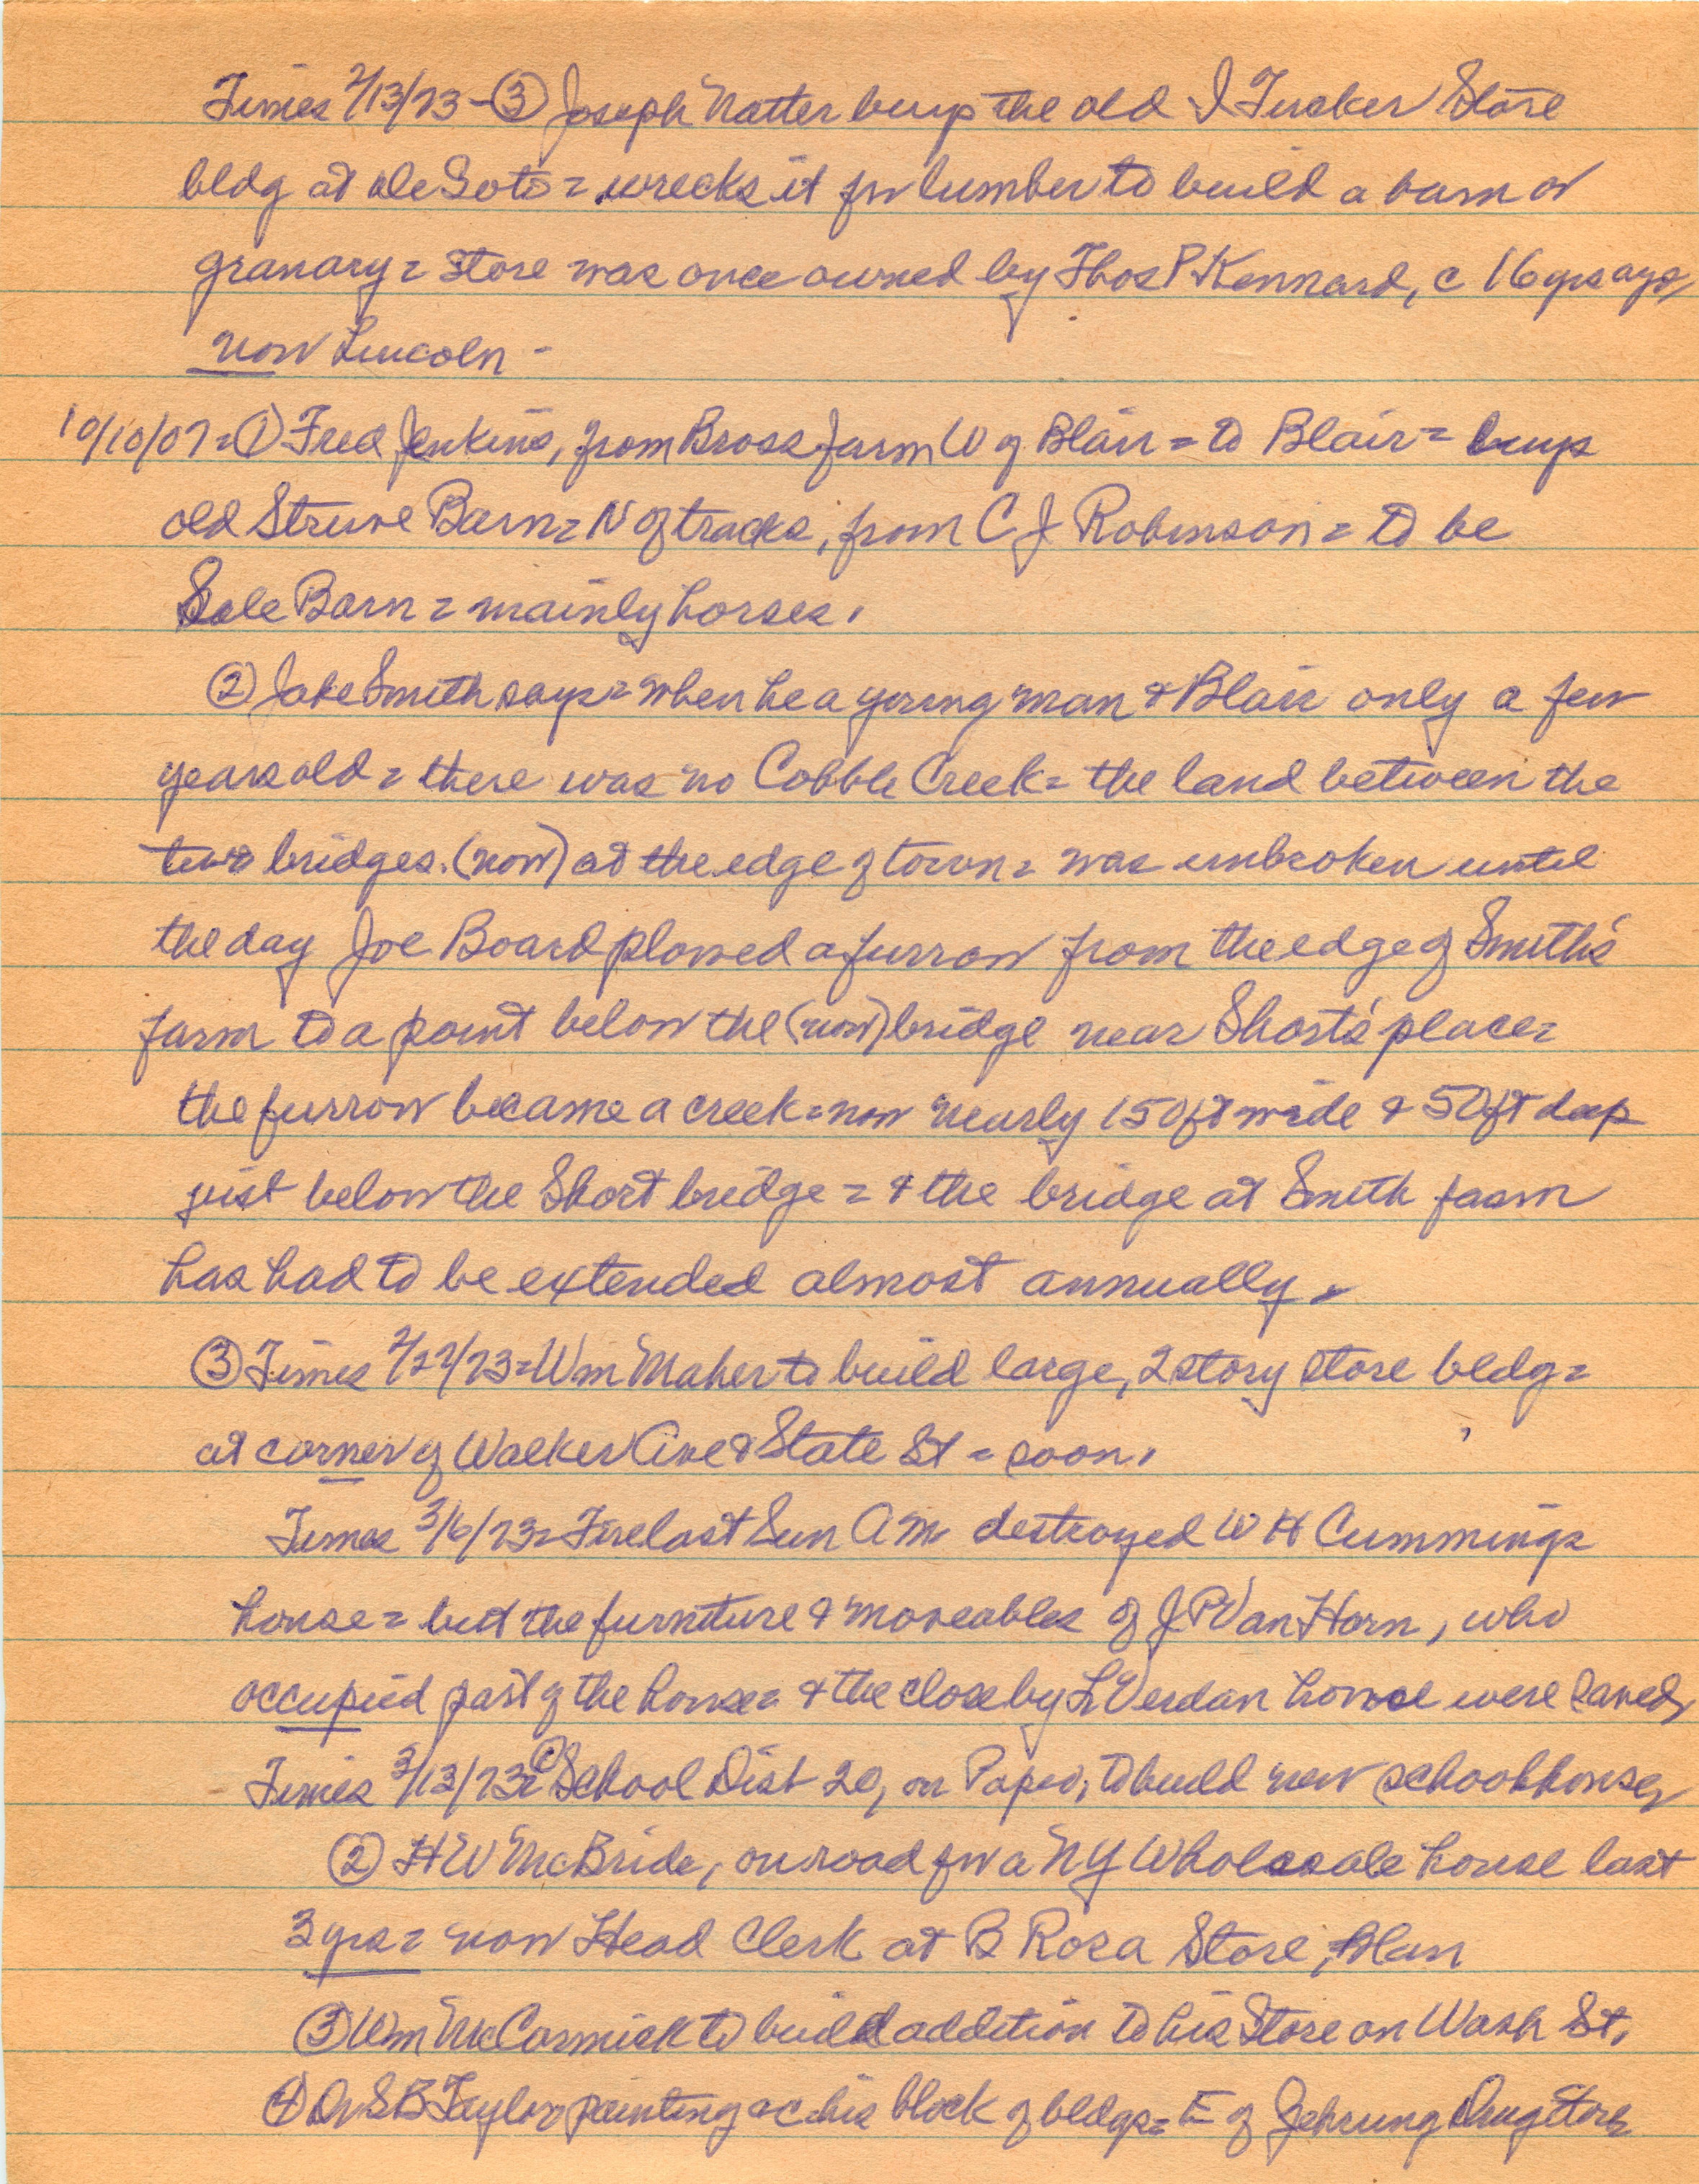 Times 2/13/73 - ③ Joseph Natter buys the old I Tucker Store
bldg at DeSoto = wrecks it for lumber to build a barn or
granary = store was once owned by Thos P Kennard, c 16 yrs ago,
now Lincoln -
10/10/07 = ① Fred Jenkins, from Bross farm W of Blair = to Blair = buys
old Struve Barn = N of tracks, from C J Robinson = to be
Sale Barn = mainly horses.
② Jake Smith says = when he a young man & Blair only a few
years old = there was no Cobble Creek = the land between the
two bridges (now) at the edge of town = was unbroken until
the day Joe Board plowed a furrow from the edge of Smith's
farm to a point below the (now) bridge near Short's place =
the furrow became a creek = now nearly 150 ft wide & 50 ft deep
just below the Short bridge = & the bridge at Smith farm
has had to be extended almost annually.
③ Times 2/27/73 = Wm Maher to build large, 2 story store bldg =
at corner of Walker Ave & State St = soon.
Times 3/6/73 = Fire last Sun AM destroyed W H Cummings
house = but the furniture & moveables of J P Van Horn, who
occupied part of the house = & the close by L Verdan house were saved,
Times 3/13/73 = ① School Dist 20, on Papio, to build new schoolhouse,
② H W McBride, on road for a NY Wholesale house last
3 yrs = now Head Clerk at B Rosa Store, Blair
③ Wm McCormick to build addition to his Store on Wash St.
④ Dr S B Taylor painting &c his block of bldgs = E of Gehrung Drug Store